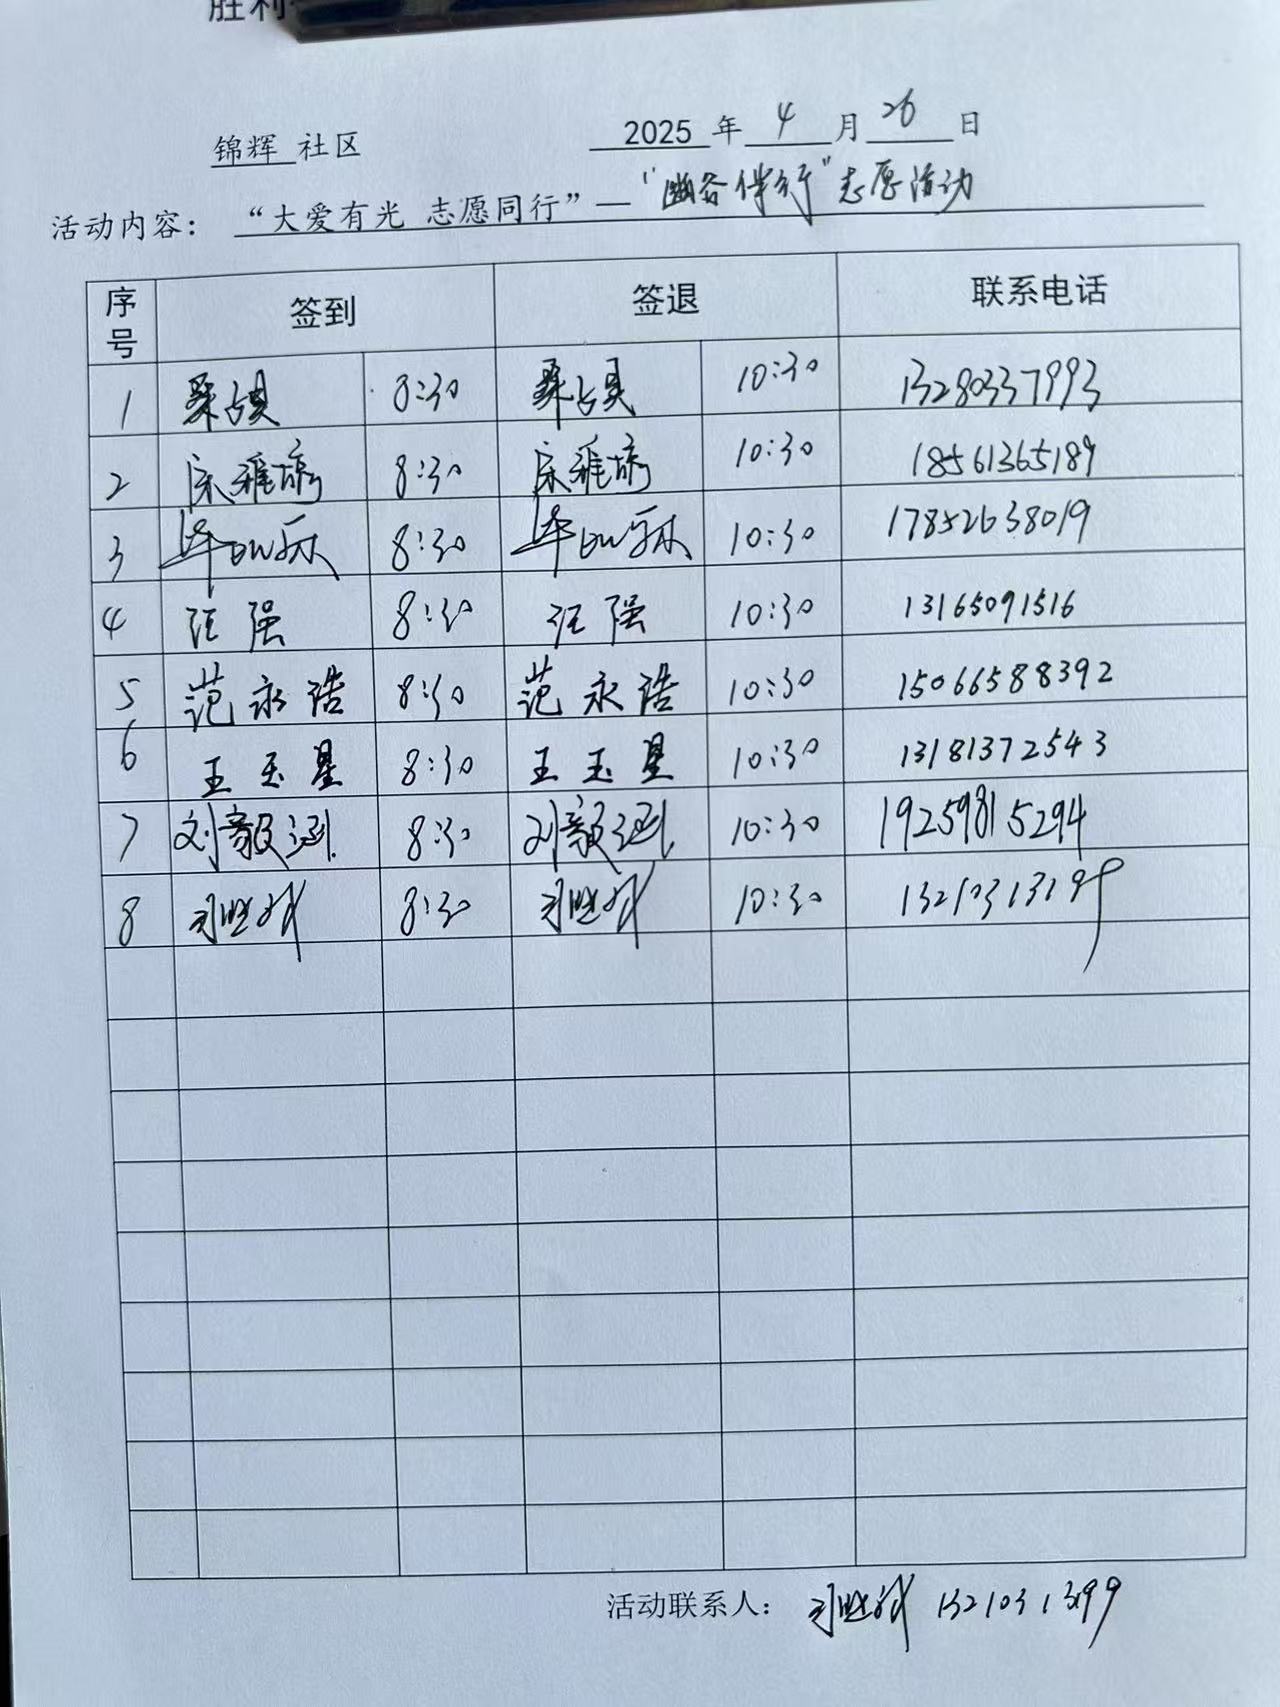 胜利
锦辉 社区 2025 年 4 月 26 日
活动内容： “大爱有光 志愿同行”— “幽谷伴行”志愿活动
序号 签到 签退 联系电话
1 8:30 10:30 13280337993
2 宋雅琦 8:30 宋雅琦 10:30 18561365189
3 8:30 10:30 17852638019
4 汪强 8:30 汪强 10:30 13165091516
5 范永浩 8:30 范永浩 10:30 15066588392
6 王玉星 8:30 王玉星 10:30 13181372543
7 刘毅涵 8:30 刘毅涵 10:30 19259815294
8 8:30 10:30 13210313199
活动联系人： 13210313199